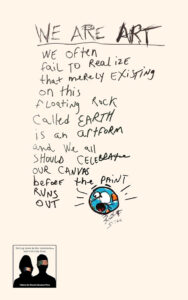 WE ARE ART
WE OFTEN
FAIL TO REALIZE
that merely EXISTING
ON this
floating ROCK
CALLED EARTH
is an ARTFORM
and WE ALL
SHOULD CELEBRATE
OUR CANVAS
before the PAINT
RUNS
OUT